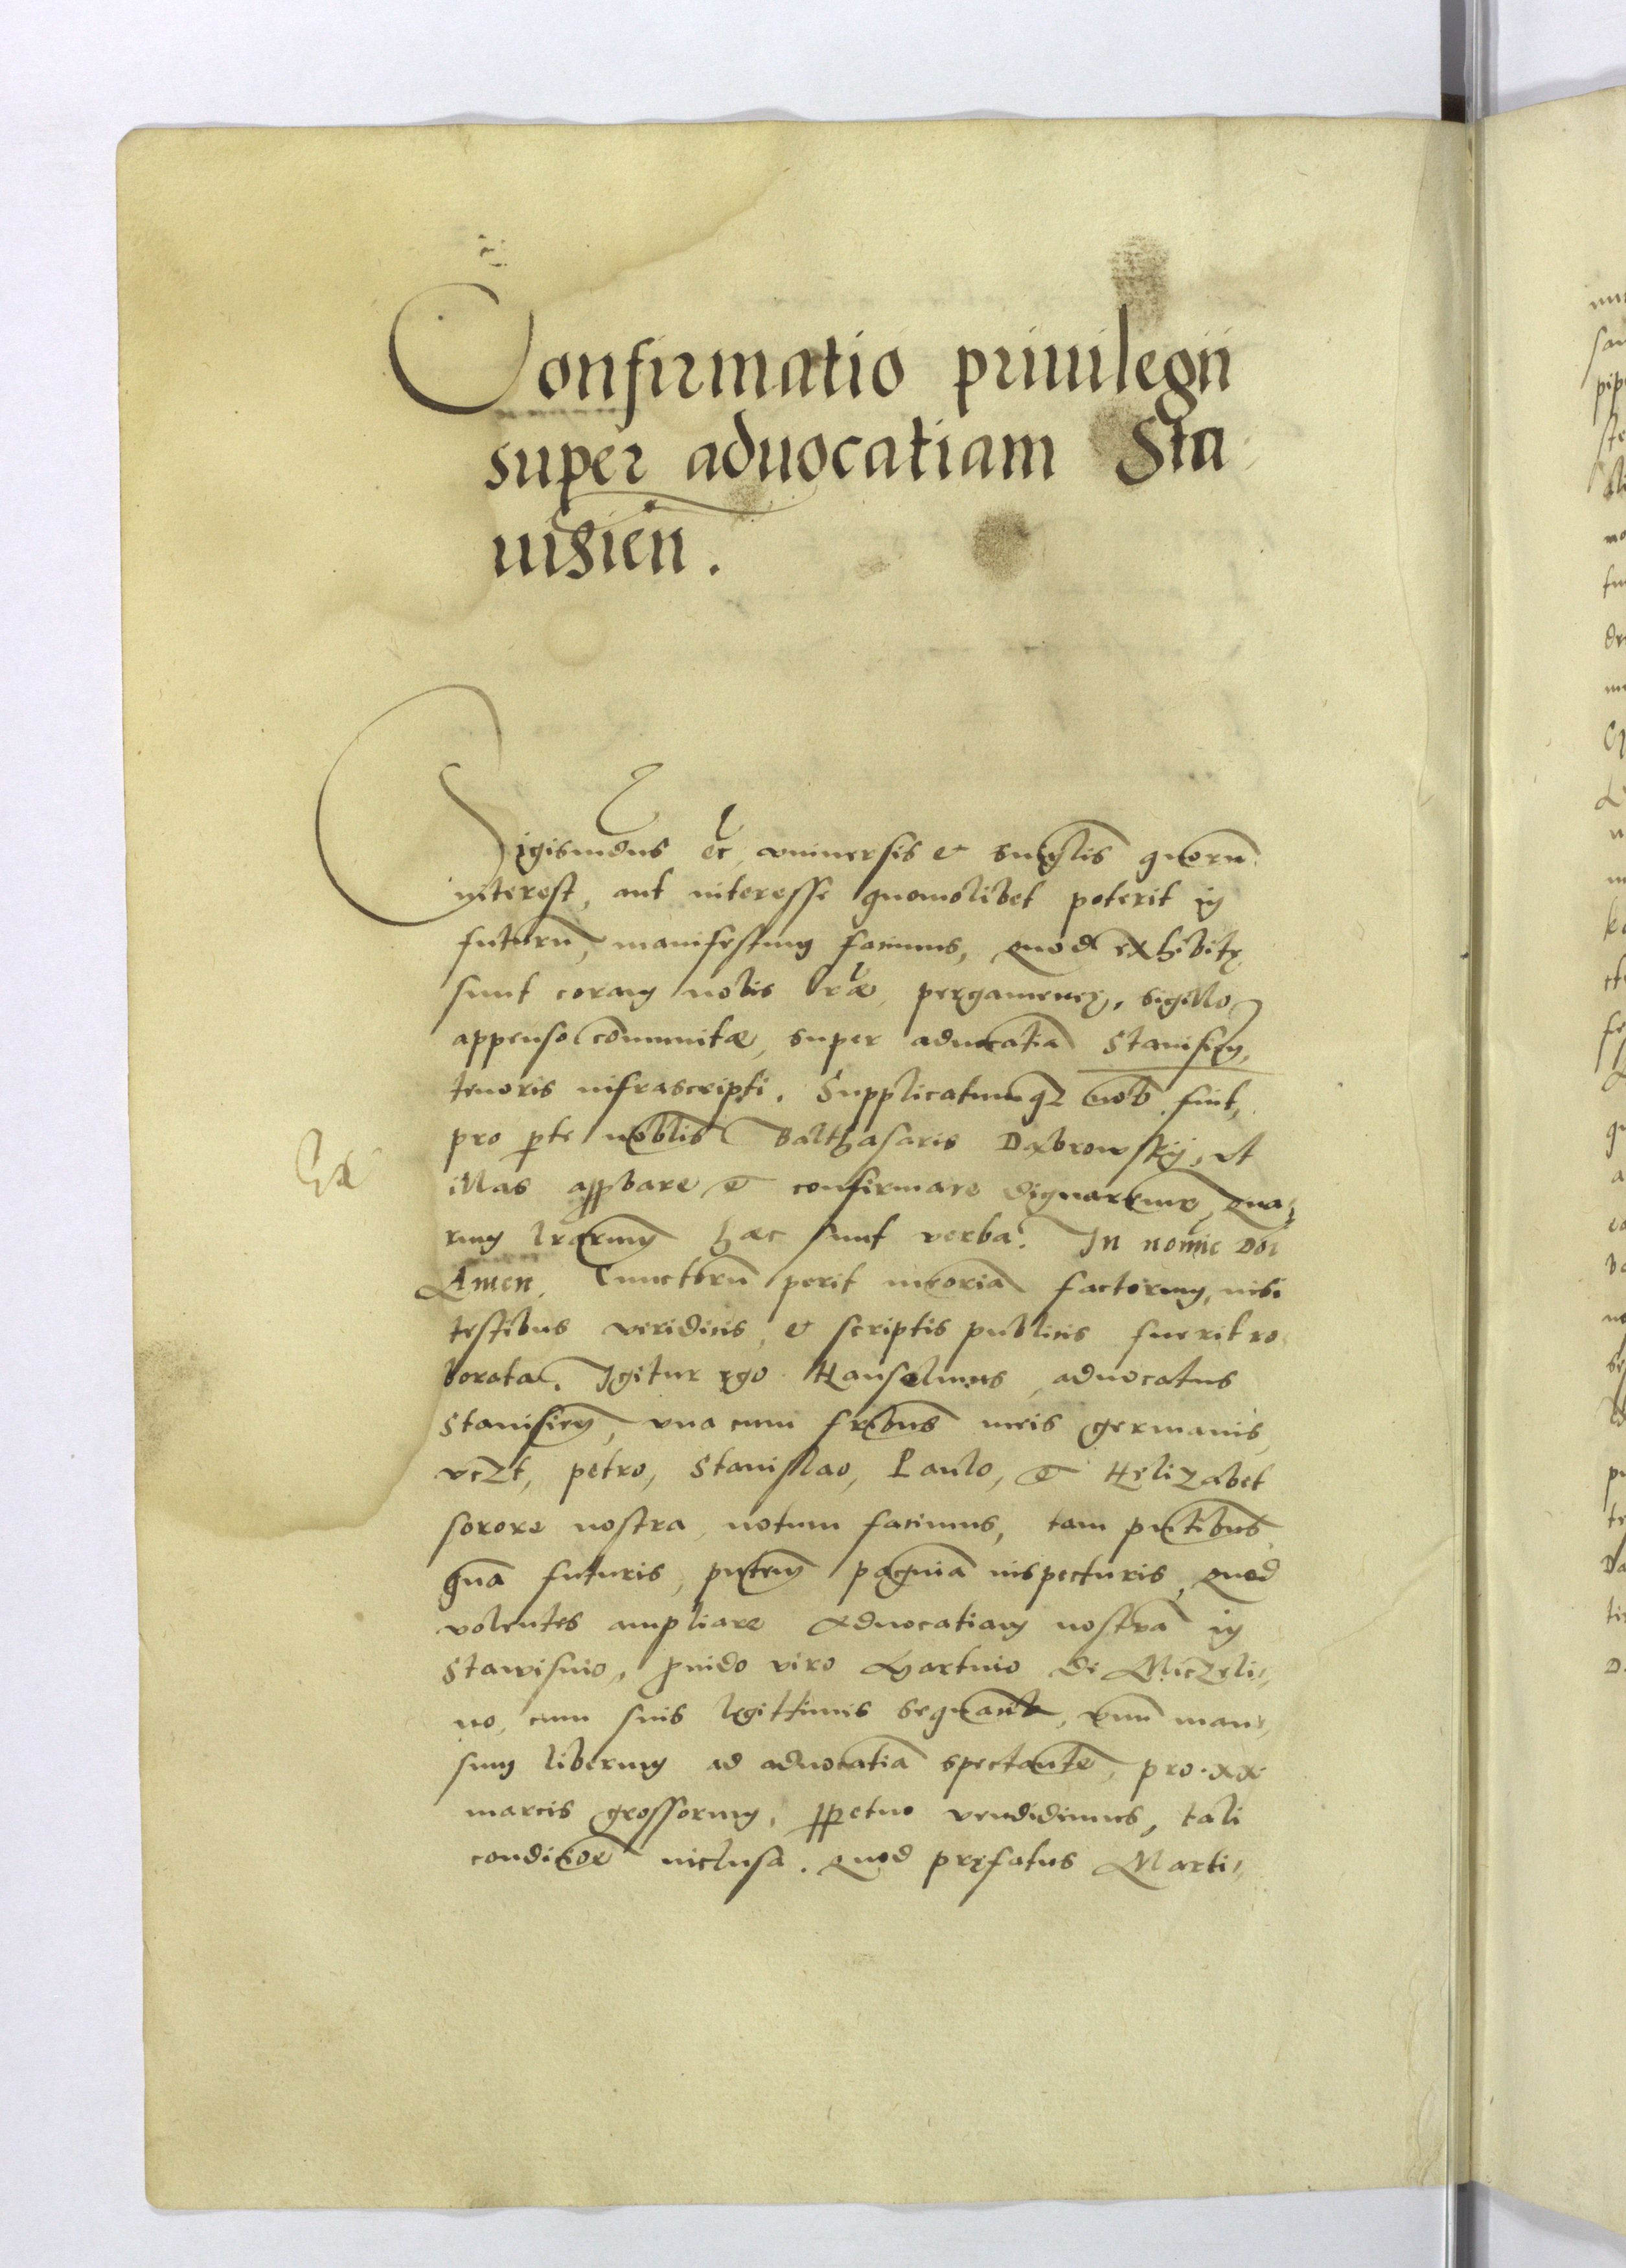 Confirmatio priuilegii
super aduocatiam Sta
uisien.
Sigismūdus ec, vniuersis & singlis quorū
interest, aut interesse quomolibet poterit in
futurū, manifestum facimus, quod exhibitę
sunt coram nobis lræ pergameneę, sigillo
appenso cōmunitæ, super aduocatiā Stauisien,
tenoris infrascripti. Supplicatumq3 nob fuit,
pro pte noblis Balthasaris Dąbrowskij, vt
illas approbare & confirmare dignaremur, qua
rum lrarum hæc sunt verba. In nomīe Doī
Amen. Cunctorū perit meoriā factorum, nisi
testibus veridicis, & scriptis publicis fuerit ro
borata. Igitur ego Hanselinus, aduocatus
Stauisien, vna cum fribus meis germanis,
vczt, petro, Stanislao, Paulo, & Helizabet
sorore nostra, notum facimus, tam pntibus,
quā futuris, pntem paginā inspecturis, quod
volentes ampliare aduocatiam nostrā in
Stawisnio, puido viro Martino de Miczeli,,
no, cum suis legittimis sequacib, vnū man,,
sum liberum ad aduocatiā spectantē, pro xx
marcis grossorum, ppetuo vendidimus, tali
conditioe inclusa. quod pręfatus Marti,,